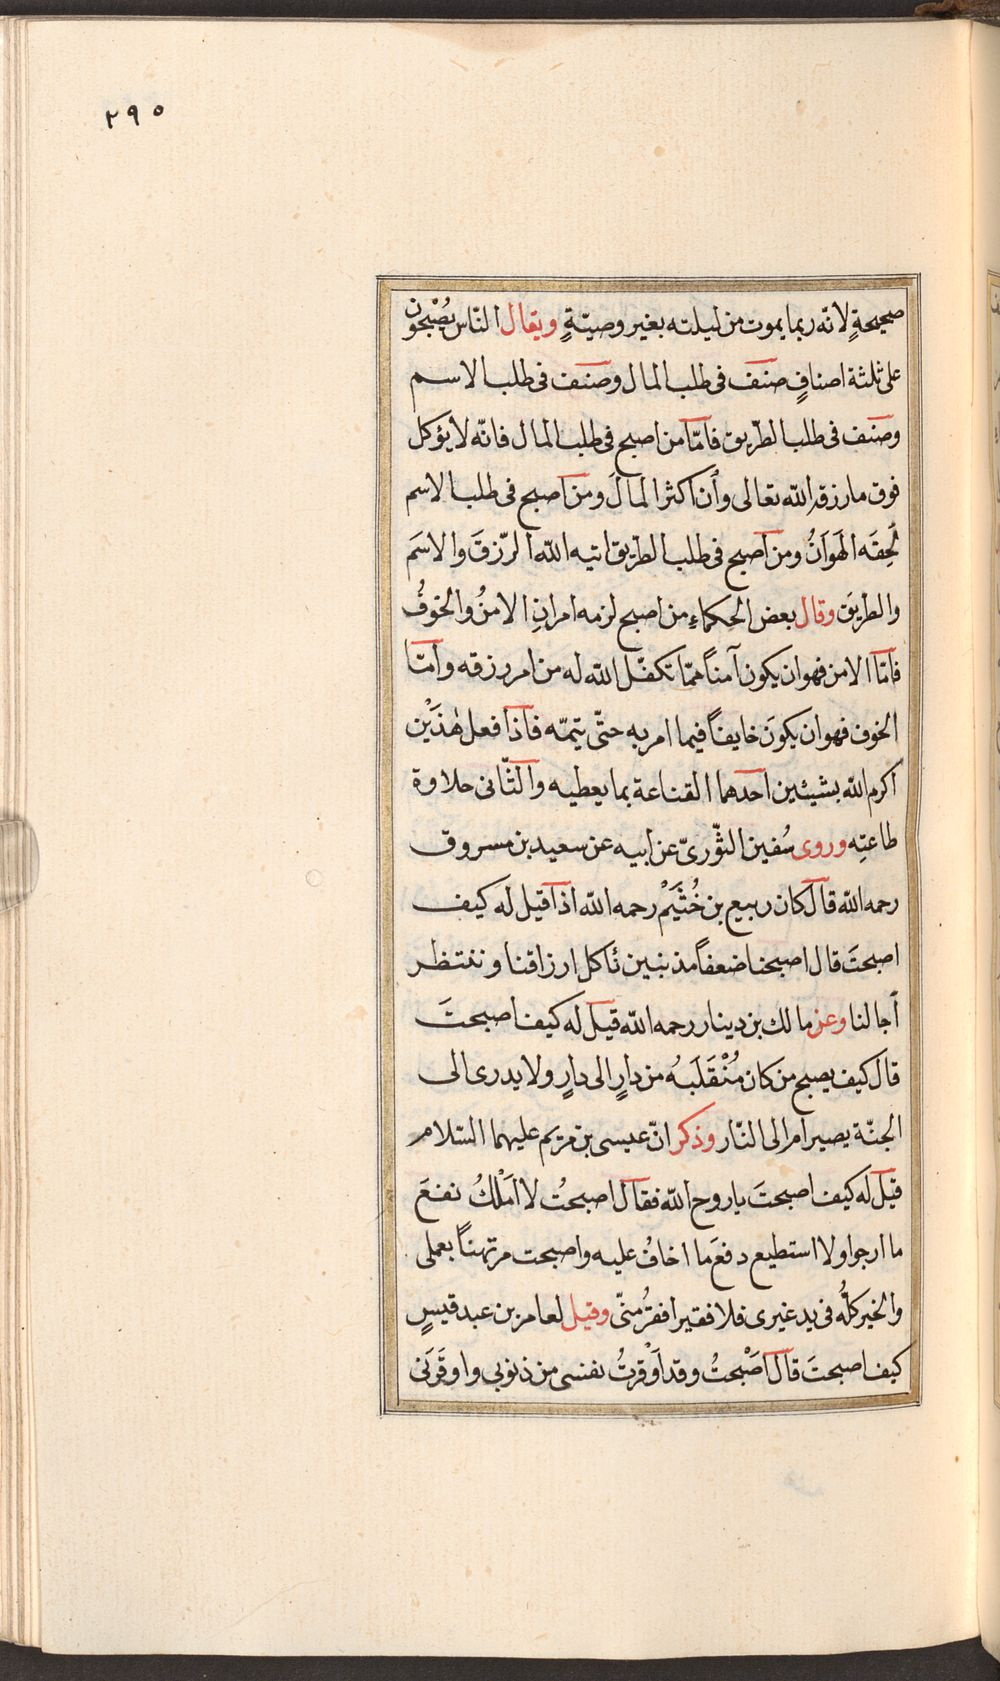 ٢٩٥
صحيحةٍ لانّه ربما يموت من ليلته بغير وصيّةٍ ويقال النّاس يصْبحُون
على ثلثة اصنافٍ صنف فى طلب المال وصنف فى طلب الاسم
وصنف فى طلب الطّريق فامّا من اصبح فى طلب المال فانّه لا يؤكل
فوق ما رزقه الله تعالى وأن اكثر المالَ ومن اصبح فى طلب الاسم
لَحِقَه الهَوَانُ ومن اصبح فى طلب الطريق اتيه الله الرّزقَ والاسَم
والطريَق وقال بعض الحكماءِ من اصبح لزمه امرانِ الامنُ والخوفُ
فامّا الامن فهو ان يكون آمناً ممّا تكفّل الله له من امر رزقه وامّا
الخوف فهو ان يكونَ خايفاً فيما امر به حتّى يتمّه فاذا فعل هٰذَيْن
اكرم الله بشيئين احدهما القناعة بما يعطيه والثّانى حلاوة
طاعتِه وروى سُفين الثّورىّ عن ابيه عن سعيد بن مسروق
رحمه الله قال كان ربيع بن خُثَيمْ رحمه الله اذا قيل له كيف
اصبحتَ قال اصبحنا ضعفاً مذنبين نأكل ارزاقنا وننتظر
أجالنا وعن مالك بن دينار رحمه الله قيل له كيف اصبحتَ
قال كيف يصبح من كان مُنْقَلَبهُ من دارٍ الى دارٍ ولا يدرى الى
الجنّة يصير ام الى النّار وذكر انّ عيسى بن مريم عليهما السّلام
قيل له كيف اصبحتَ يا روح الله فقال اصبحتُ لا امَلْكُ نفعَ
ما ارجوا ولا استطيع دفعَ ما اخافُ عليه واصبحت مرتهناً بعملى
والخير كلّه فى يد غيرى فلا فقير افقرُ منّى وقيل لعامر بن عبد قيسٍ
كيف اصبحتَ قال اصَبْحتُ وقد اَوْقرتُ نفسى من ذنوبى واوقَرَنى